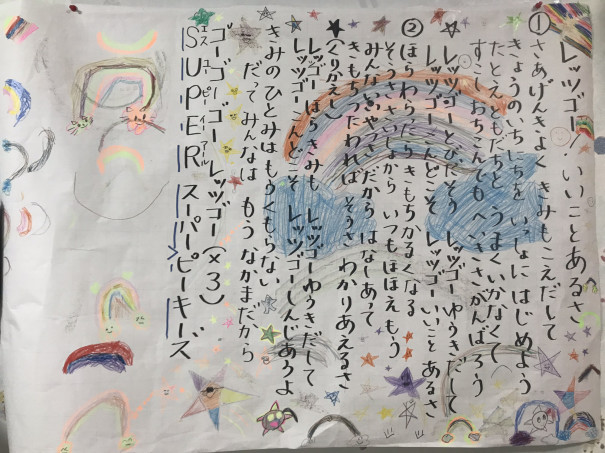 レッツゴー！いいことあるさ
①さあげんきよく きみもこえだして
きょうのいちにちを いっしょに はじめよう
たとえともだちと うまくいかなくて
すこしおちこんでも へいきさ がんばろう
☆レッツゴーとびだそう レッツゴー ゆうきだして
レッツゴーこんどこそ レッツゴー いいこと あるさ
②ほらわらったら きもちかるくなる
そうさ さいしょから いつもほほえもう
みんないいやつさ だから はなしあって
きもちつたわれば そうさ わかりあえるさ
★(くりかえし)
レッツゴー ほらきみも レッツゴーゆうきだして
レッツゴーこんどこそ レッツゴーしんじあうよ
きみのひとみは もうくもらない
だってみんなは もう、なかまだから
ゴーゴーゴー レッツゴー(×3)
エス ユー ピー イー アール
SUPER スーパーピーキーズ